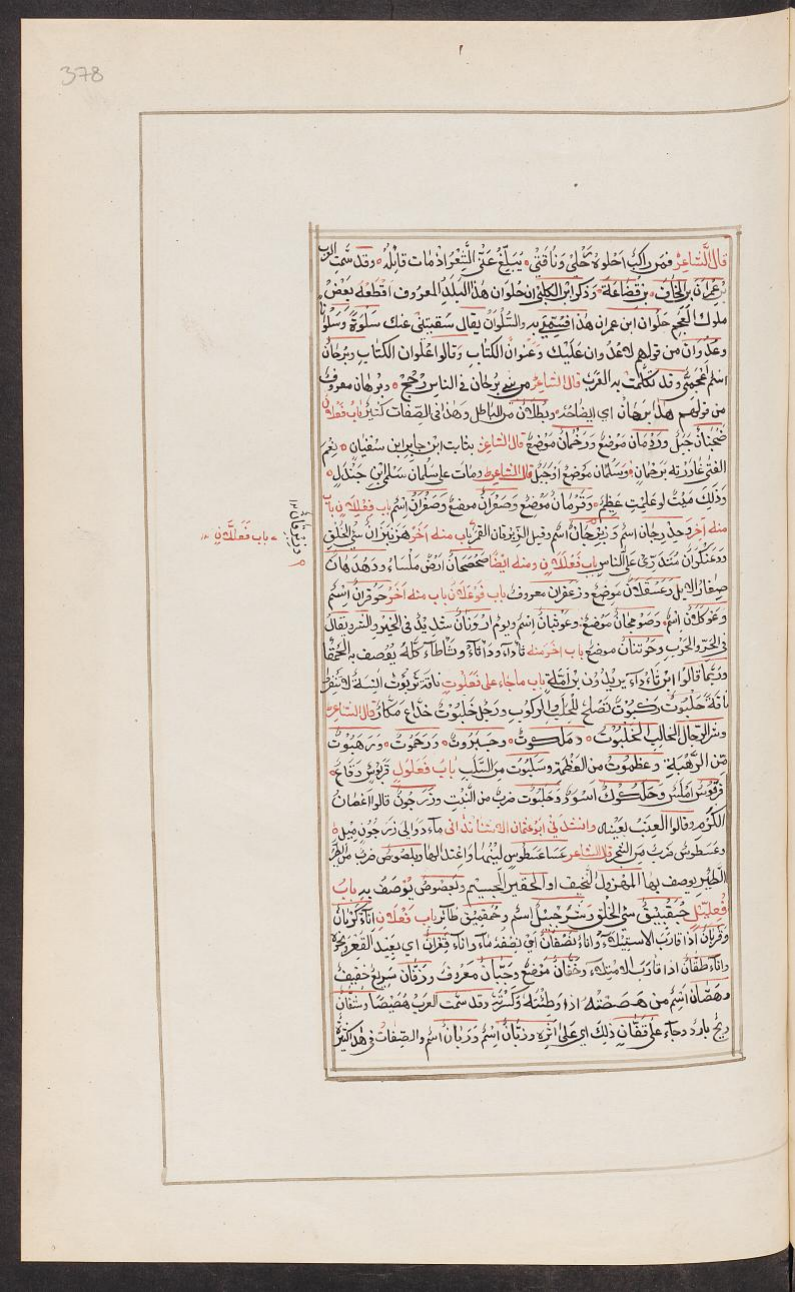 378
قال الشاعر فمن راكب احلوه رحلي وناقتي ، يبلّغ عني الشعر اذ مات قائله ، وقد سمّت العرب
بن عمران بن الحاف بن قضاعة ، وذكر ابن الكلبي ان حلوان هذا البلد المعروف اقطعه بعض
ملوك العجم حلوان ابن عمران هذا فسمي به والسلوان يقال سقيتني عنك سلوة وسلوانا
وعدوان من قولهم لا عدوان عليك وعنوان الكتاب وقالوا علوان الكتاب وبرجان
اسم اعجمي وقد تكلمت به العرب قال الشاعر من بني برجان في الناس رجح ، وبرهان معروف
من قولهم هذا برهان اي ايضاحه وبطلان من الباطل وهذا في الصفات كثير باب فعلان
ضجنان جبل ودرمان موضع ورخمان موضع قال الشاعر بثابت ابن جابر ابن سفيان ، نعم
الفتى غادرته برخمان ، وسلمان موضع او جبل قال الشاعر ومات على سلمان سلمى بن جندل ،
وذلك ميت لو علمت عظيم ، وقرمان موضع وصفوان موضع وصفوان اسم باب فعللان باب
منه آخر وحدرجان اسم وزبرجان اسم وقيل الزبرقان القمر باب منه آخر هزنبزان سيّئ الخلق
ودعنكران متدرّئ على الناس باب فعللان ومنه ايضا صحصحان ارض ملساء ودهدهان
صغار الابل وعسقلان موضع وزعفران معروف باب فوعلان باب منه آخر حوفزان اسم
وعوكلان اسم وصومحان موضع وعوثبان اسم ويوم ارونان شديد في الخير والشر ويقال
في الحر والحزب وحوتنان موضع باب آخر منه ثأداء ودأثاء كله يوصف به الحمقا
وربما قالوا ابن ثأداء يريدون بن امة باب ما جاء على فعلوت ناقة تربوت انسة لا تنفر
ناقة حلبوت ركبوت تصلح للحلب والركوب ورجل خلبوت خداع مكار قال الشاعر
وشر الرجال الخالب الخلبوت ، وملكوت ، وجبروت ، ورحموت ، ورهبوت
من الرهبة وعظموت من العظمة وسلبوت من السلب باب فعلول قربوس
قرقوس املس وحلكوك اسود وحلبوت ضرب من النبت وزرجون قالوا اغصان
الكرم وقالوا العنب بعينه وانشدني ابو عثمان الاشنانداني ماء دوالي زرجون ميل ،
وعسطوس ضرب من الشجر قال الشاعر عصا عسطوس لينها واعتدالها وبلصوص ضرب من الطير
الطير يوصف بها المهزول النحيف او الحقير الجسيم وبعصوص يوصف به باب
فعليل حبقبيق سيّئ الخلق وشرحبيل اسم وخمقميق طائر باب فعلان اناء كربان
وقربان اذا قارب الامتلاء واناء نصفان اي نصفه ماء واناء قعران اي بعيد القعر
واناء طفان اذا قارب الامتلاء وخفان موضع وجبان معروف وزفان سريع خفيف
وهصان اسم من هصصته اذا وطئته وكسرته وقد سمت العرب هصيصا وشفان
ريح بارد وجاء على قفان ذلك اي على اثره وزبان اسم وربان اسم والصفات في هذا كثيرة
وزبرقان
باب فعللان